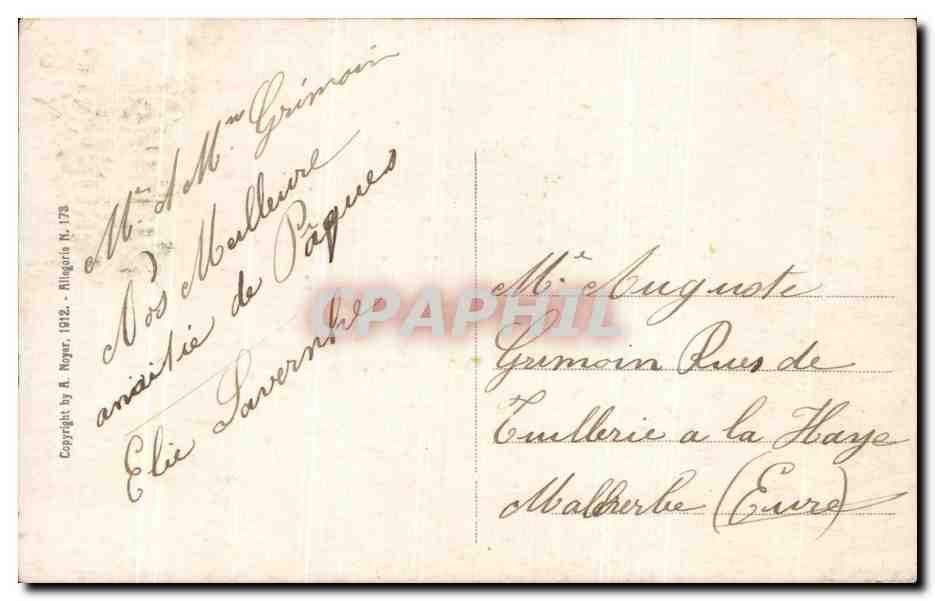 Mr. & Mme Grimoin
Nos Meilleure
amitié de Pâques
Elie Lavernhe
Me. Auguste
Grimoin Rues de
Tuillerie a la Haye
Malherbe (Eure)
Copyright by A. Noyer, 1912. - Allegorie N. 173
CPAPHIL